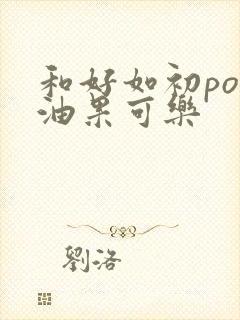 和好如初po
油果可樂
劉洛